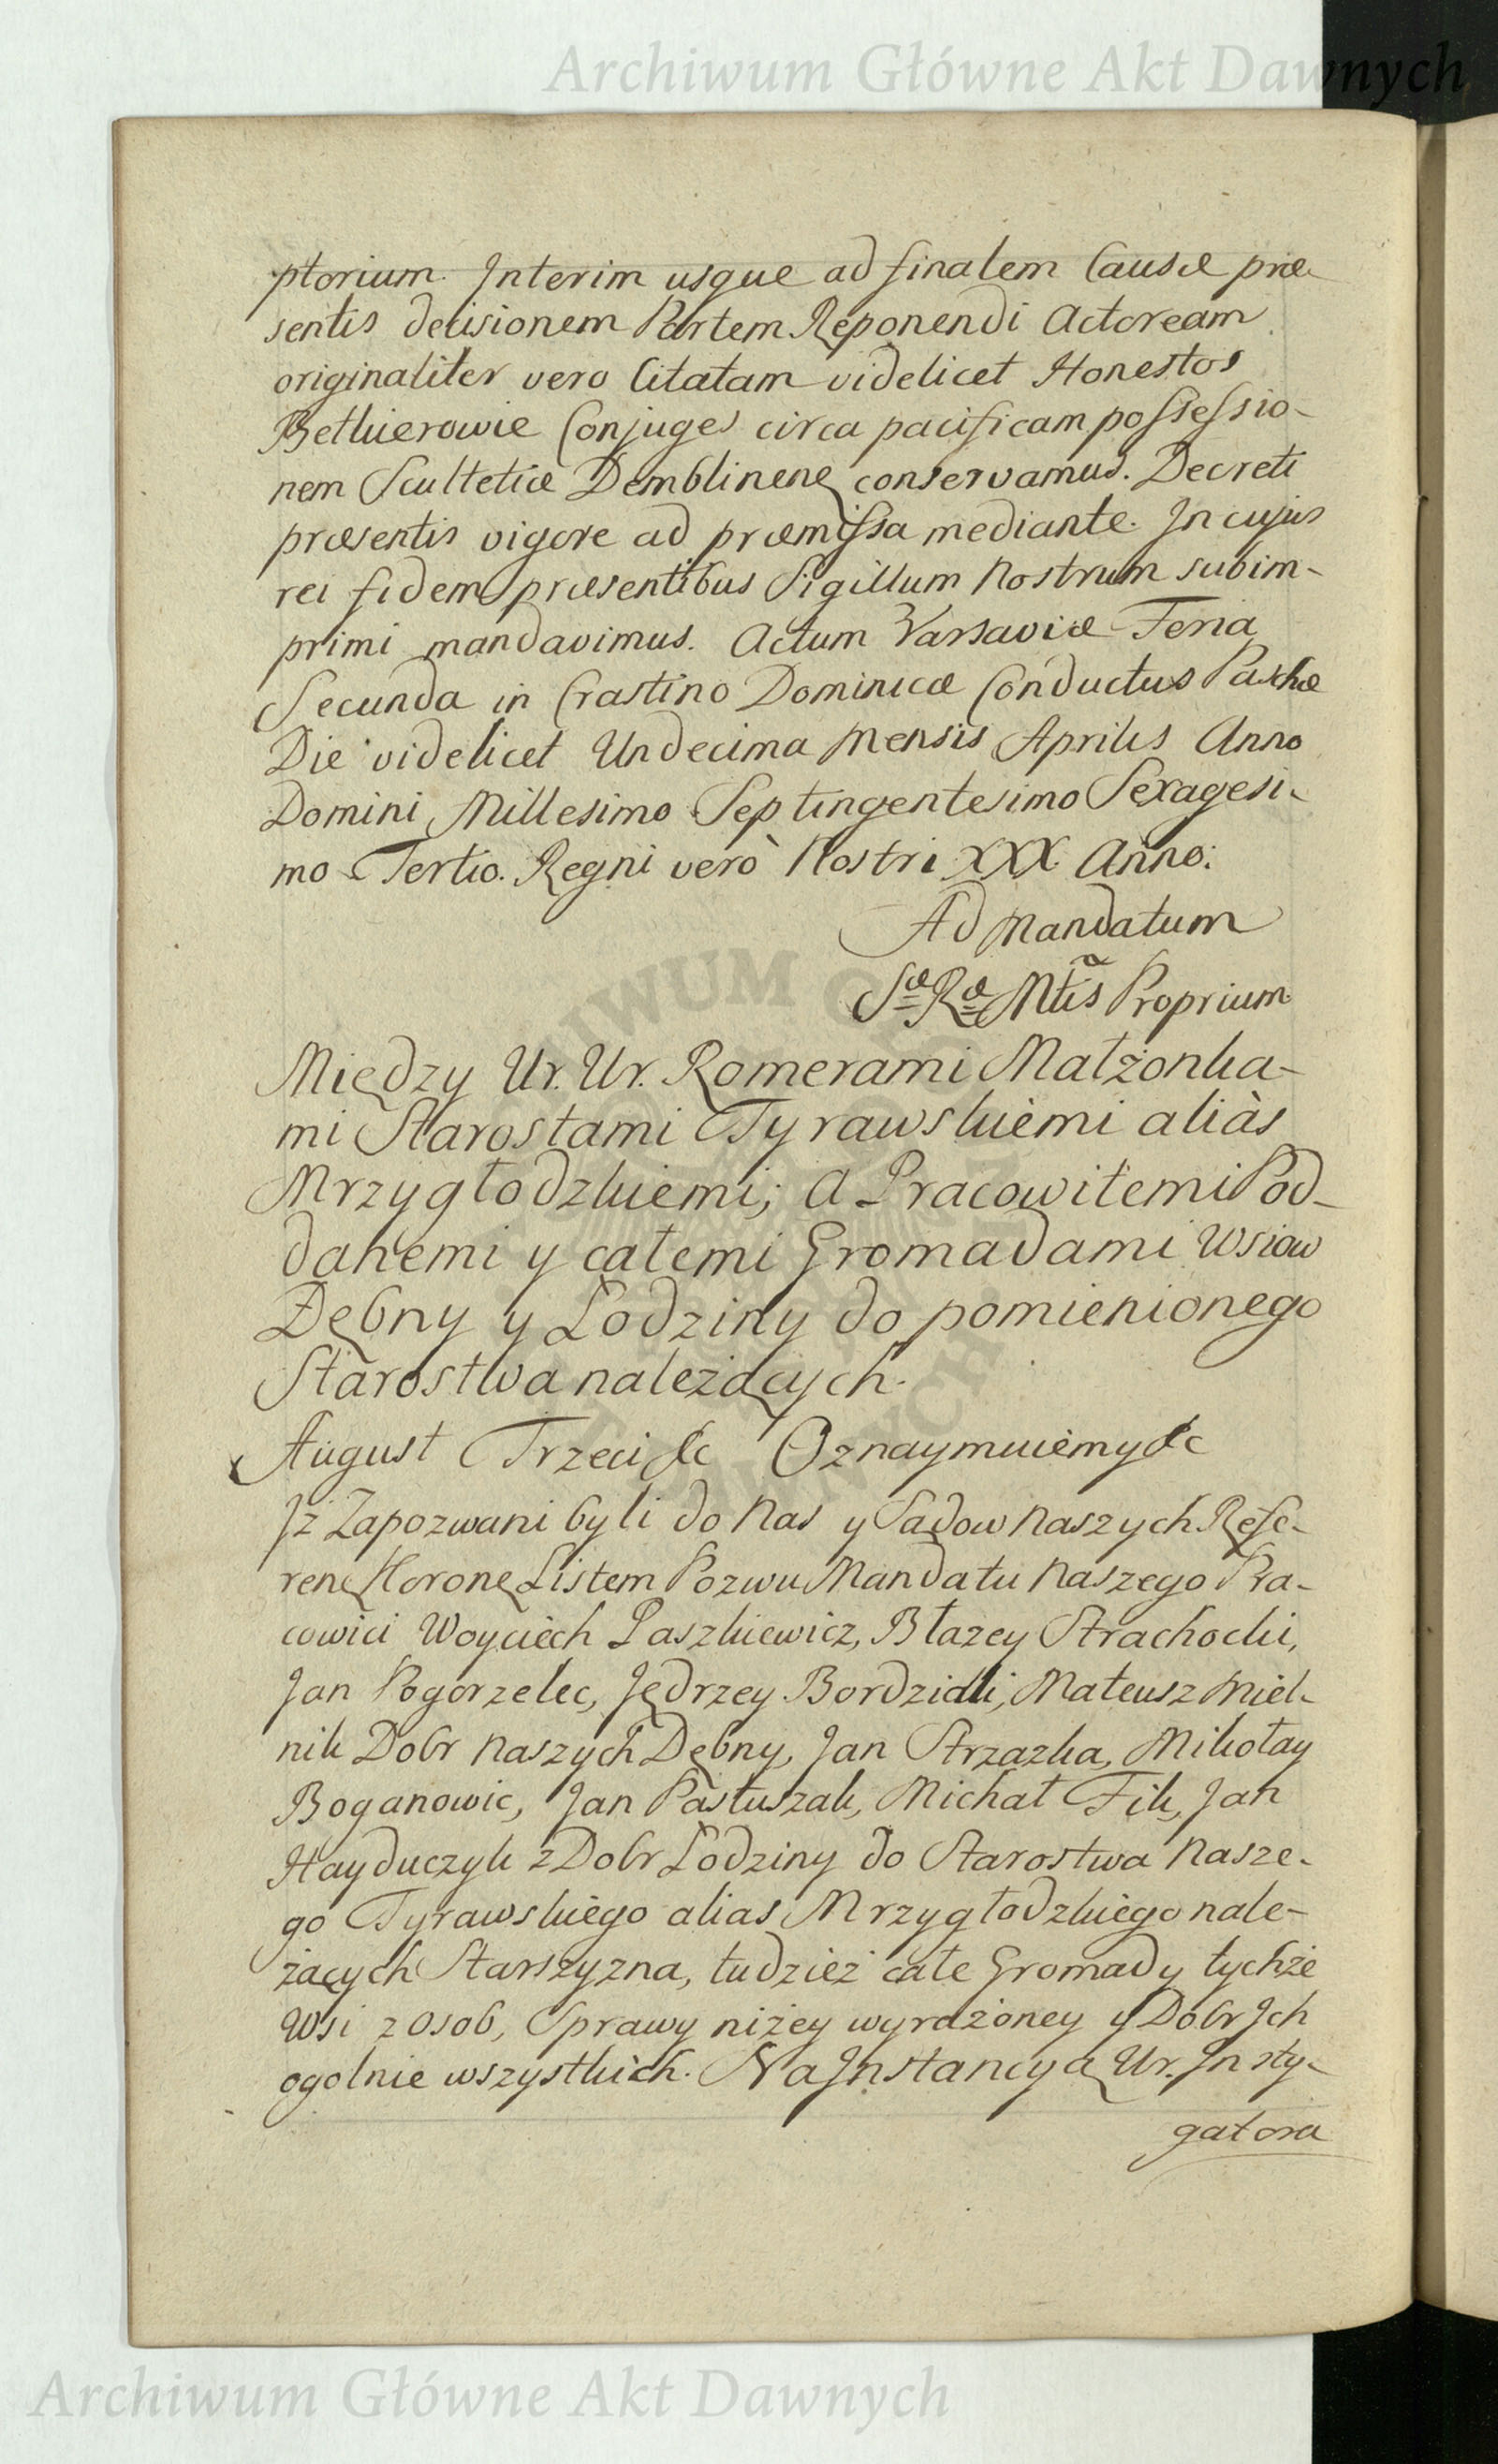 Archiwum Główne Akt Dawnych
ptorium. Interim usque ad finalem Causæ præ-
sentis decisionem Partem Reponendi Actoream
originaliter vero Citatam videlicet Honestos
Betkierowie Conjuges circa pacificam possessio-
nem Scultetiæ Demblinen conservamus. Decreti
præsentis vigore ad præmissa mediante. In cujus
rei fidem præsentibus Sigillum Nostrum subim-
primi mandavimus. Actum Varsaviæ Feria
Secunda in Crastino Dominicæ Conductus Paschæ
Die videlicet Undecima Mensis Aprilis Anno
Domini Millesimo Septingentesimo Sexagesi-
mo Tertio. Regni verò Nostri XXX Anno.
Ad Mandatum
Sæ Ræ Mtis Proprium
Między Ur. Ur. Romerami Małżonka-
mi Starostami Tyrawskiemi aliàs
Mrzygłodzkiemi; a Pracowitemi Pod-
danemi y całemi Gromadami Wsiow
Dębny y Łodziny do pomienionego
Starostwa należących.
August Trzeci &c Oznaymuiemy &c
Jż Zapozwani byli do Nas y Sądow Naszych Refe-
ren Koron Listem Pozwu Mandatu Naszego Pra-
cowici Woyciech Paszkiewicz, Błazey Strachocki,
Jan Pogorzelec, Jędrzey Bordzicki, Mateusz Miel-
nik Dobr Naszych Dębny, Jan Strzazka, Mikołay
Boganowic, Jan Pastuszak, Michał Fik, Jan
Hayduczyk z Dobr Łodziny do Starostwa Nasze-
go Tyrawskiego alias Mrzygłodzkiego nale-
żących Starszyzna, tudzież całe Gromady tychże
Wsi z Osob, Sprawy niżey wyrażoney y Dobr Jch
ogolnie wszystkich. Na Jnstancyą Ur. Jnsty-
gatora
Archiwum Główne Akt Dawnych